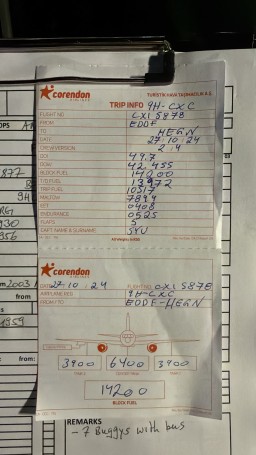 corendon
AIRLINES
TURISTIK HAVA TAŞIMACILIK A.Ş.
TRIP INFO 9H-CXC
FLIGHT NO CXI 587B
FROM EDDF
TO HEGN
DATE 27·10·24
CREW/VERSION 2:4
DOI 44.7
DOW 42.455
BLOCK FUEL 14200
T/O FUEL 13972
TRIP FUEL 10317
EET 0408
ENDURANCE 0525
FLAPS 5
CAPT. NAME & SURNAME
corendon
AIRLINES
27·10:24 FLIGHT NO CXI 587B
AIRPLANE REG 9H-CXC
FROM/TO EDDF-HEGN
3900 6400 3900
14200
BLOCK FUEL
REMARKS
- 7 Buggys with bus
from
from: